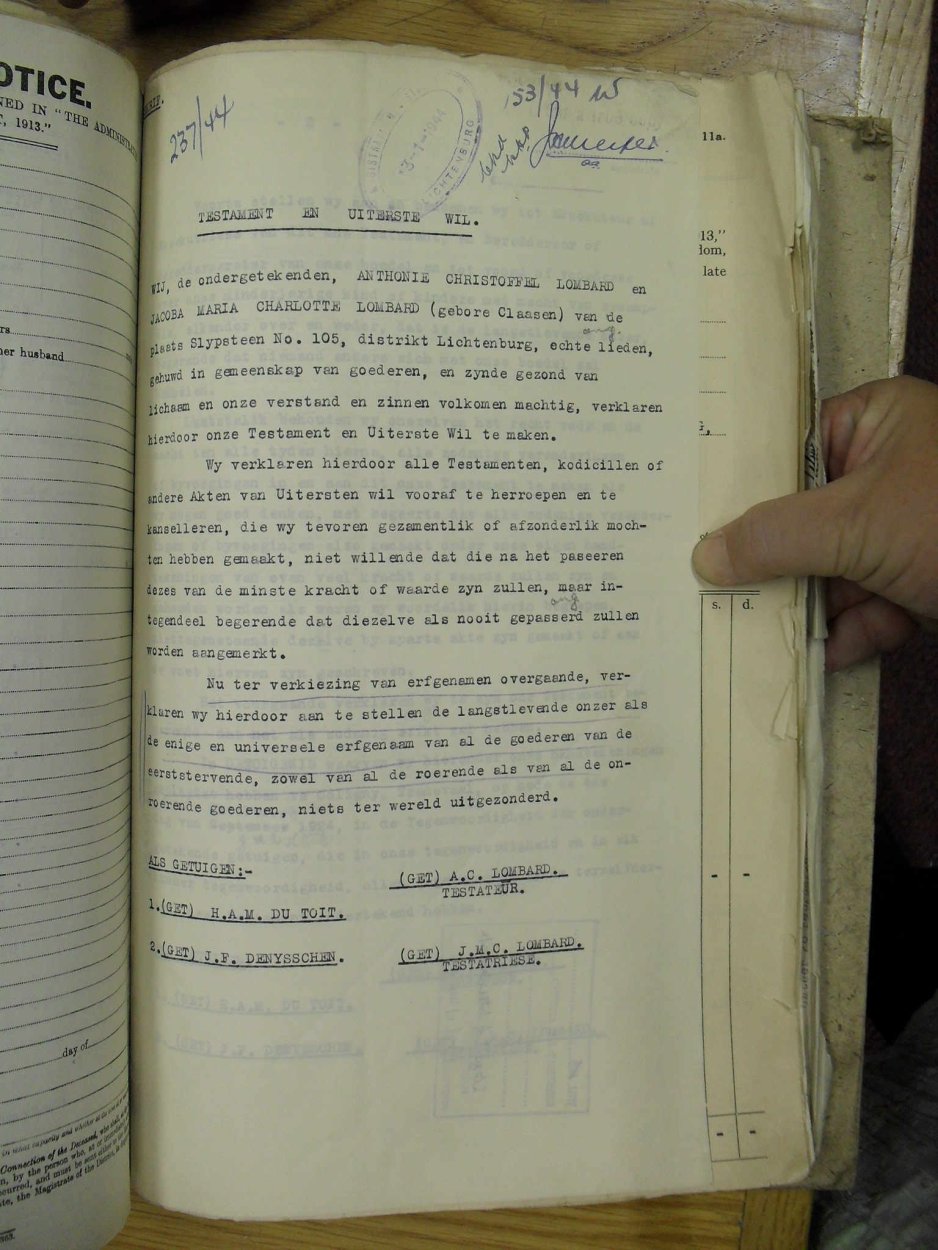 OTICE.
NED IN "THE ADMINISTRA
T, 1913."
rs
her husband
day of
Connection of the Deceased,
237/44
53/44
3-1-1944
LICHTENBURG
TESTAMENT EN UITERSTE WIL.
WIJ, de ondergetekenden, ANTHONIE CHRISTOFFEL LOMBARD en
JACOBA MARIA CHARLOTTE LOMBARD (gebore Claasen) van de
plaats Slypsteen No. 105, distrikt Lichtenburg, echte lieden,
gehuwd in gemeenskap van goederen, en zynde gezond van
lichaam en onze verstand en zinnen volkomen machtig, verklaren
hierdoor onze Testament en Uiterste Wil te maken.
Wy verklaren hierdoor alle Testamenten, kodicillen of
andere Akten van Uitersten wil vooraf te herroepen en te
kanselleren, die wy tevoren gezamentlik of afzonderlik moch-
ten hebben gemaakt, niet willende dat die na het paseeren
dezes van de minste kracht of waarde zyn zullen, maar in-
tegendeel begerende dat diezelve als nooit gepasserd zullen
worden aangemerkt.
Nu ter verkiezing van erfgenamen overgaande, ver-
klaren wy hierdoor aan te stellen de langstlevende onzer als
de enige en universele erfgenaam van al de goederen van de
eerststervende, zowel van al de roerende als van al de on-
roerende goederen, niets ter wereld uitgezonderd.
ALS GETUIGEN:-
(GET) A.C. LOMBARD.
TESTATEUR.
1.(GET) H.A.M. DU TOIT.
2.(GET) J.F. DENYSSCHEN.
(GET) J.M.C. LOMBARD.
TESTATRIESE.
11a.
13,"
dom,
late
s. d.
- -
- -